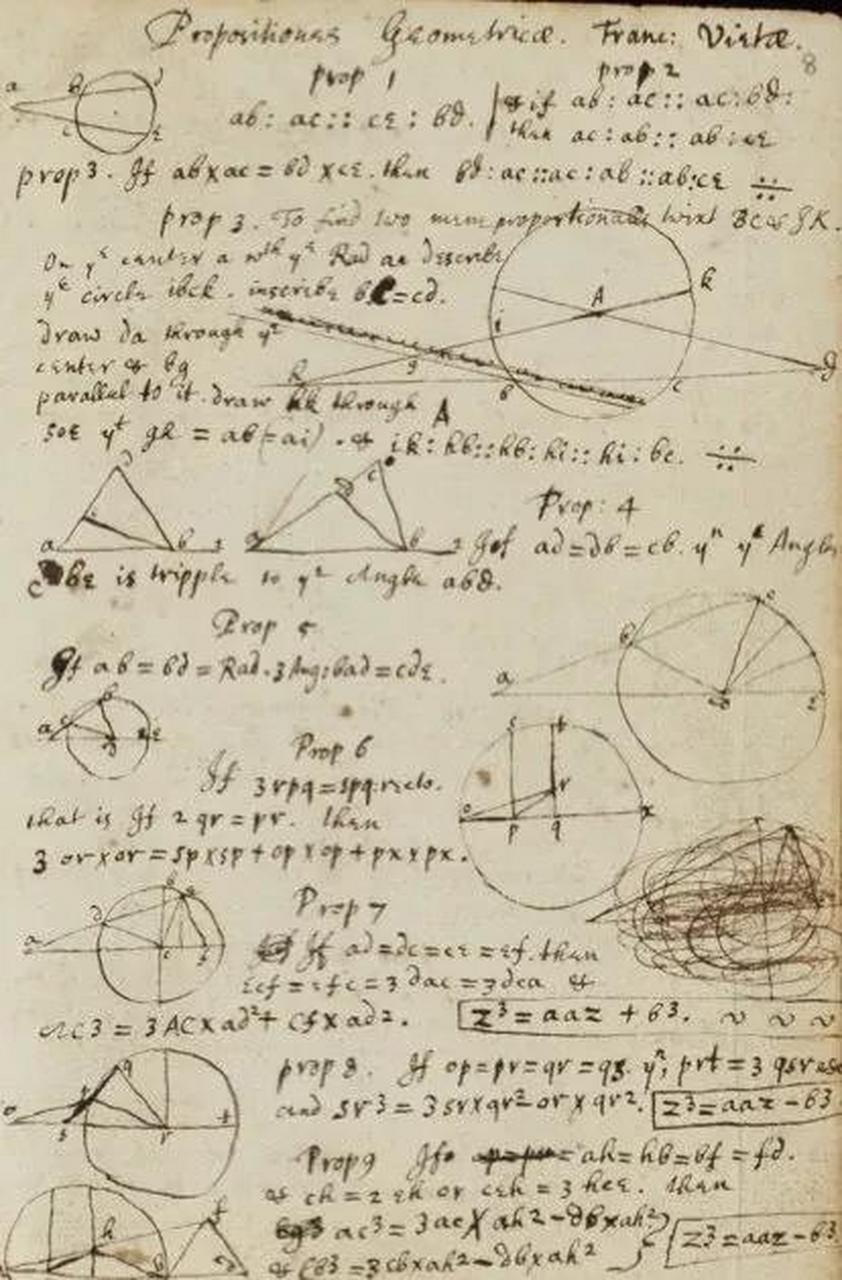 Propositiones Geometricæ. Franc: Vietæ.
8
prop 1
ab : ac :: cε : bd.
prop 2
& if ab : ac :: ac : bd :
then ac : ab :: ab : cε
prop 3. If ab x ac = bd x cε. then bd : ac :: ac : ab :: ab : cε ∺
prop 3. To find two meane proportionalls twixt BC &
On yᵉ center a wᵗʰ yᵉ Rad describe
yᵉ circle ibck. inscribe bc = cd.
draw da through yᵉ
center & bg
parallel to it. draw hk through A
soe yᵗ gh = ab (= ai). & ik : hb :: hb : hi :: hi : bc. ∺
Prop: 4
If ad = db = cb. yⁿ yᵉ Angle
cbε is tripple to yᵉ Angle abd.
Prop 5
If ab = bd = Rad. 3 Ang: bad = cdε.
Prop 6
If 3 rpq = spq: recto.
that is If 2 qr = pr. then
3 or x or = sp x sp + op x op + px x px.
Prop 7
If ad = dc = cε = εf. then
εcf = εfc = 3 dac = 3 dca &
ac3 = 3 AC x ad2 + cf x ad2.
z3 = aaz + b3.
prop 8. If op = pr = qr = qs. yⁿ; prt = 3 qsr
and sr3 = 3 sr x qr2 - or x qr2.
z3 = aaz - b3
Prop 9 If ah = hb = bf = fd.
& ch = 2 εh or cεh = 3 hcε. then
ac3 = 3ac x ah2 - db x ah2
& cb3 = 3cb x ah2 - db x ah2
z3 = aaz - b3